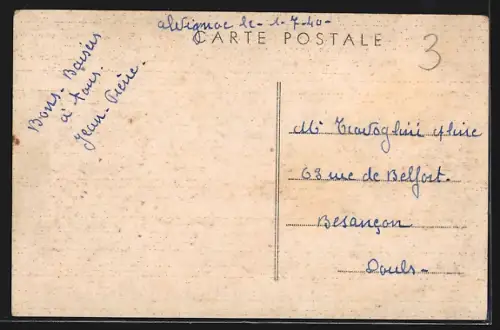 alvignac le - 1-7-40-
CARTE POSTALE
3
Bons - Baisers
à tous.
Jean-Pierre.
Mr
68 rue de Belfort.
Besançon
Doubs -